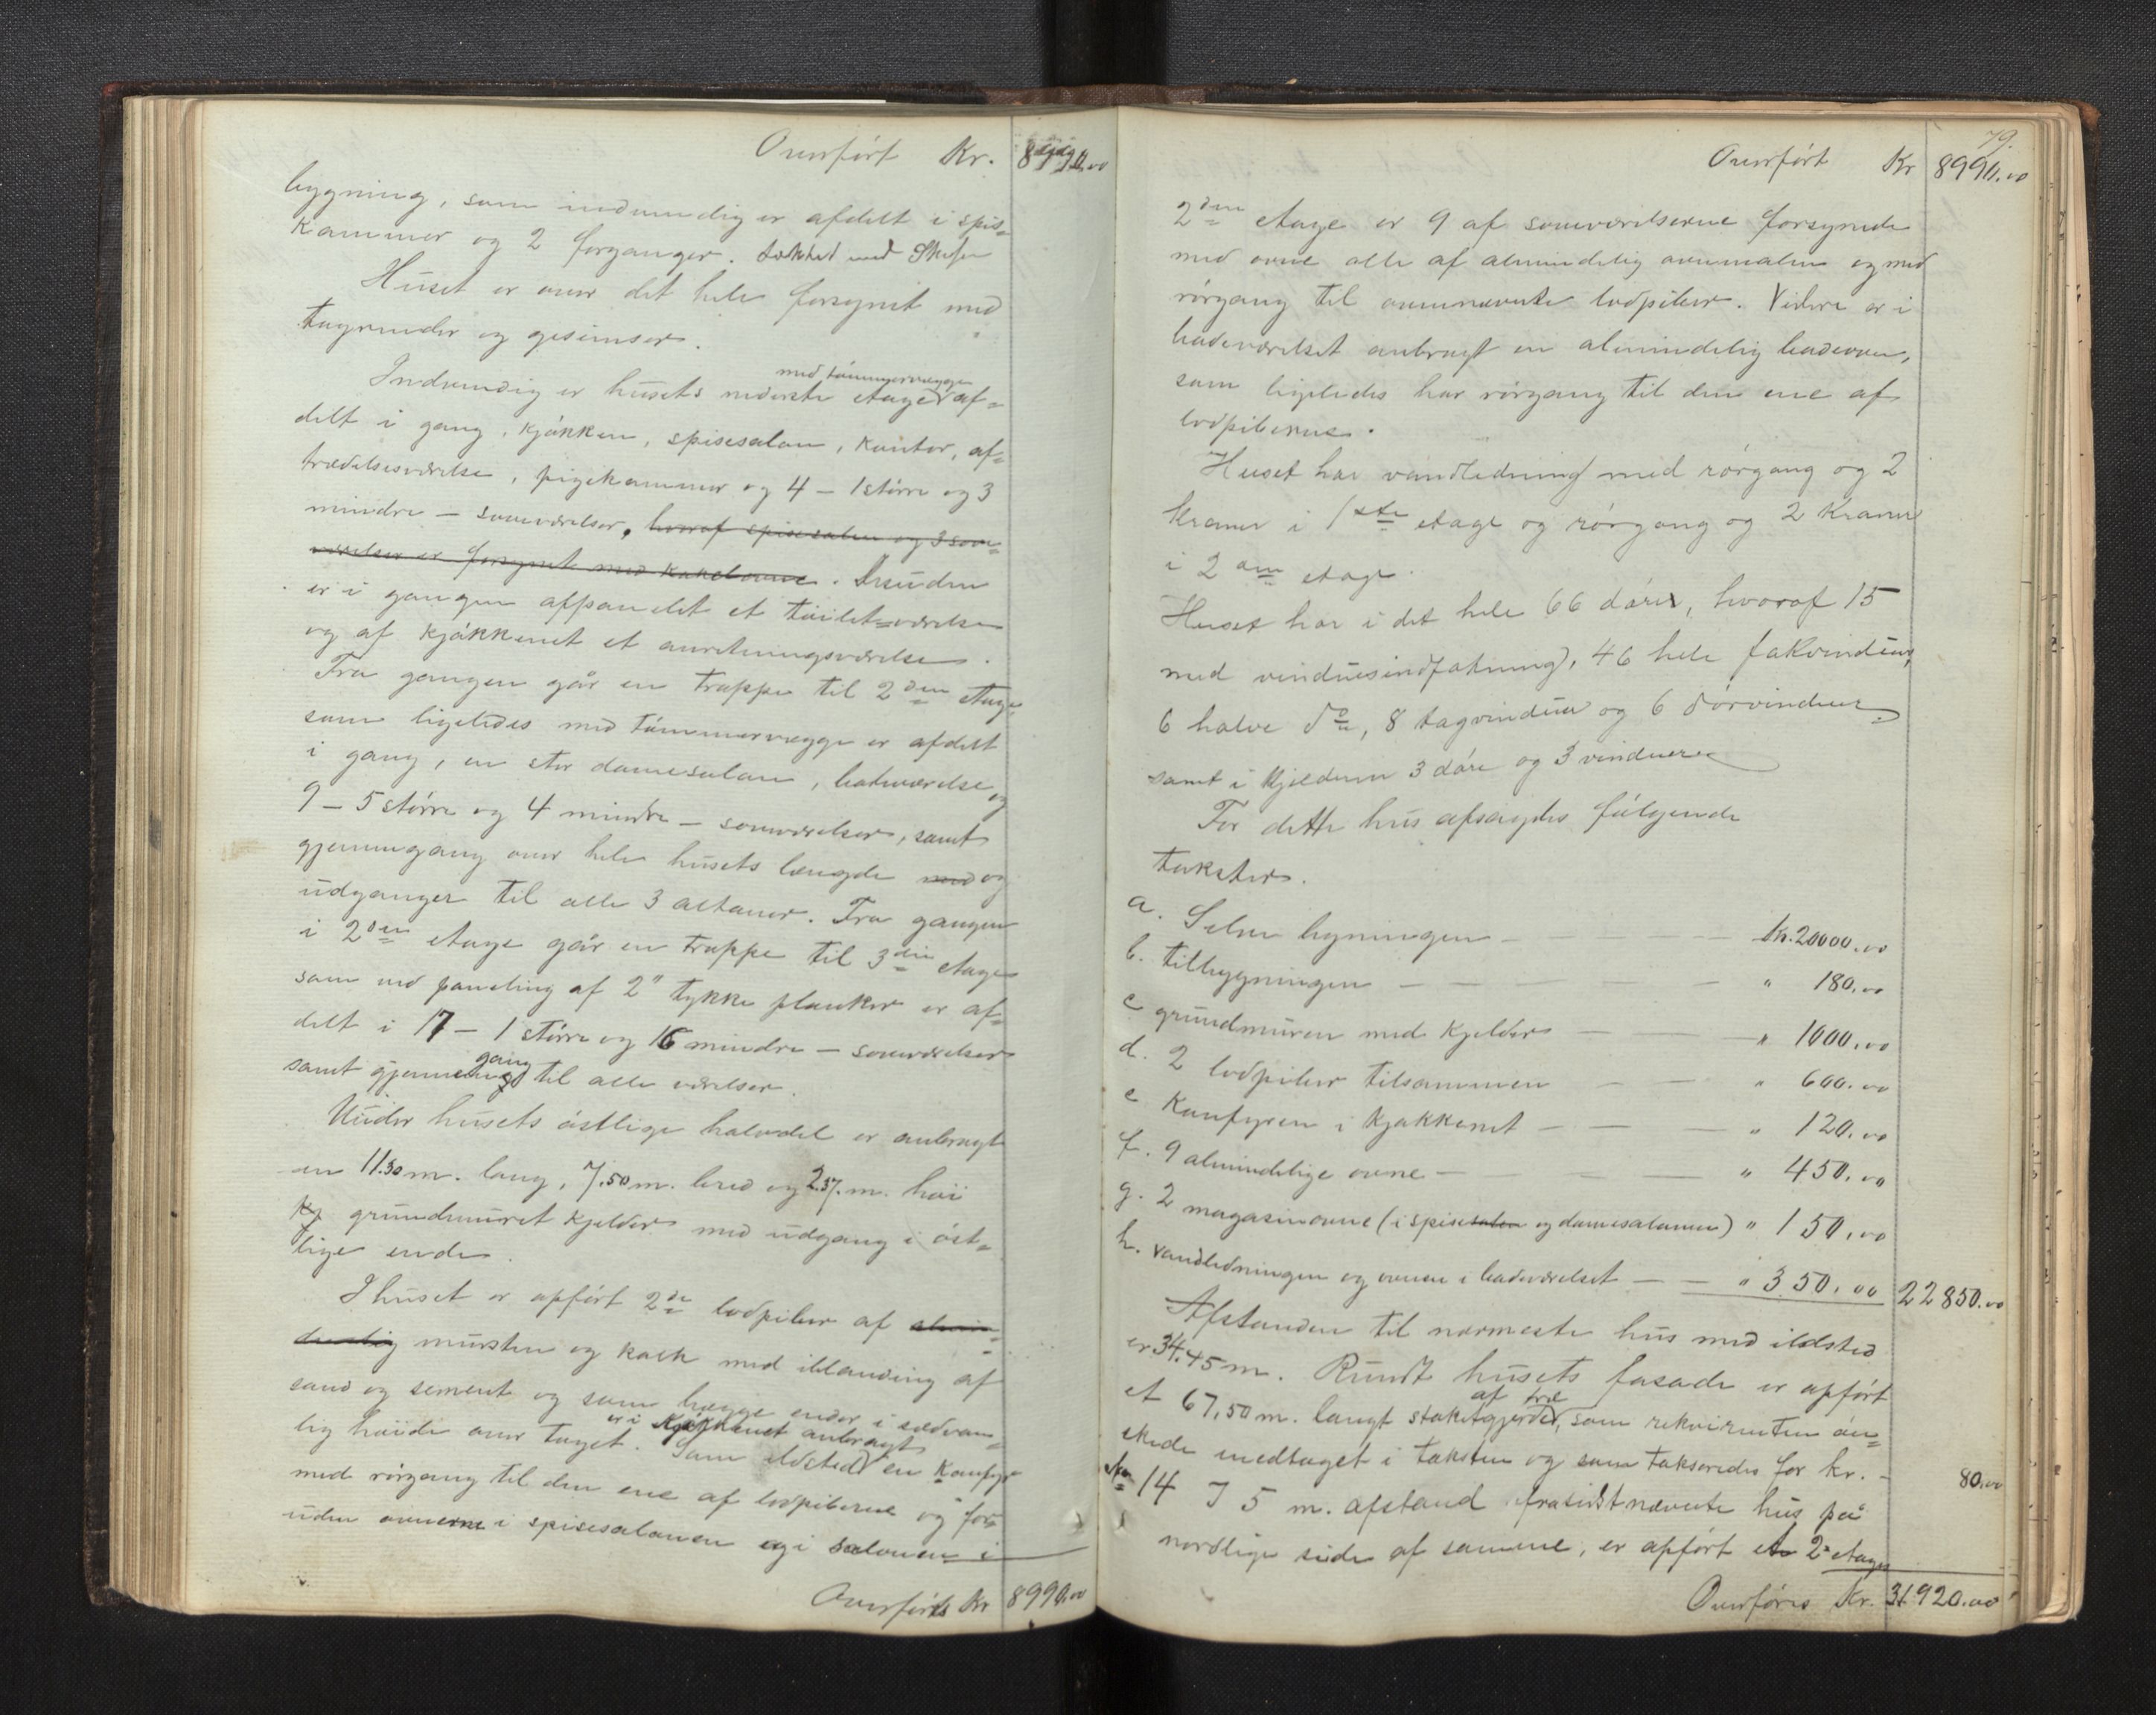 Overført Kr. 8990.00
bygning, som indvendig er afdelt i spis-
kammer og 2 forganger. tækket med Skifer
Huset er over det hele forsynet med
tagrender og gesimser.
med tømmervægge
Indvendig er husets nederste etage af-
delt i gang, kjøkken, spisesalon, kontor, af-
trædelsesværelse, pigekammer og 4 - 1 større og 3
mindre - soveværelser, hvoraf spisesalen og 3 sove-
værelser er forsynet med kakelovne. Desuden
er i gangen afpanelet et toilet-værelse
og af kjøkkenet et anretningsværelse.
Fra gangen går en trappe til 2den etage
som ligeledes med tømmervægge er afdelt
i gang, en stor damesalon, badeværelse og
9 - 5 større og 4 mindre - soveværelser, samt
gjennemgang over hele husets længde med og
udganger til alle 3 altaner. Fra gangen
i 2den etage går en trappe til 3die etage
som ved paneling af 2" tykke planker er af-
delt i 17 - 1 større og 16 mindre - soveværelser
samt gjennemgang til alle værelser.
Under husets østlige halvdel er anbragt
en 11.30 m. lang, 7.50 m. bred og 2.37. m. høi
kj grundmuret kjelder med udgang i øst-
lige ende.
I huset er opført 2de lodpiber af almin-
delig mursten og kalk med iblanding af
sand og sement og som begge ender i sædvan-
lig høide over taget. Som ildsted er i kjøkkenet anbragt en komfyr
med rørgang til den ene af lodpiberne og for-
uden ovnerne i spisesalonen og i salonen i
Overføres Kr 8990.00
79.
Overført Kr 8990.00
2den etage er 9 af soveværelserne forsynede
med ovne alle af almindelig ovnsmalm og med
rørgang til ovennævnte lodpiber. Videre er i
badeværelset anbragt en almindelig badeovn,
som ligeledes har rørgang til den ene af
lodpiberne.
Huset har vandledning med rørgang og 2
kraner i 1ste etage og rørgang og 2 kraner
i 2den etage.
Huset har i det hele 66 døre, hvoraf 15
med vinduesindfatning, 46 hele fakvinduer,
6 halve do, 8 tagvinduer og 6 dørvinduer
samt i kjelderen 3 døre og 3 vinduer
For dette hus afsagdes følgende
takster.
a. Selve bygningen — Kr. 20000.00
b. tilbygningen — " 180.00
c grundmuren med kjelder — " 1000.00
d. 2 lodpiber tilsammen — " 600.00
e komfyren i kjøkkenet — " 120.00
f. 9 almindelige ovne — " 450.00
g. 2 magasinovne (i spisesalen og damesalonen) " 150.00
h. vandledningen og ovnen i badeværelset — " 350.00 22850.00
Afstanden til nærmeste hus med ildsted
er 34.45 m. Rundt husets fasade er opført
et 67,50 m. langt stakitgjerde af træ, som rekvirenten øn-
skede medtaget i taksten og som takseredes for kr. - 80.00
No 14 I 5 m. afstand fra sidstnævnte hus på
nordlige side af samme, er opført et 2 etages
Overføres Kr. 31920.00